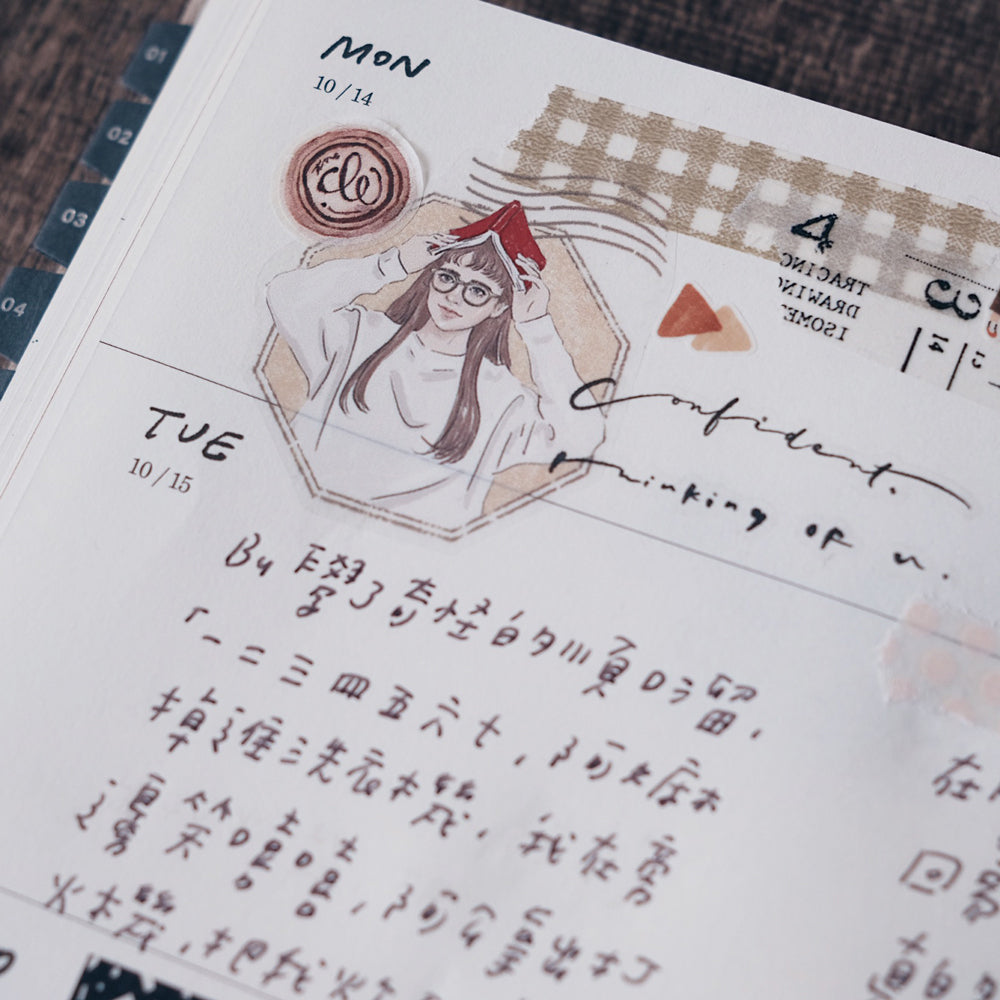 01
02
03
04
MON
10/14
4
TRACING
DRAWING
3
Confident.
thinking of u.
TUE
10/15
By 學了奇怪的順口溜，
「一二三四五六七，阿
掉進洗衣機，我在旁
邊笑嘻嘻，阿公拿出打
火機，把我火
在
回